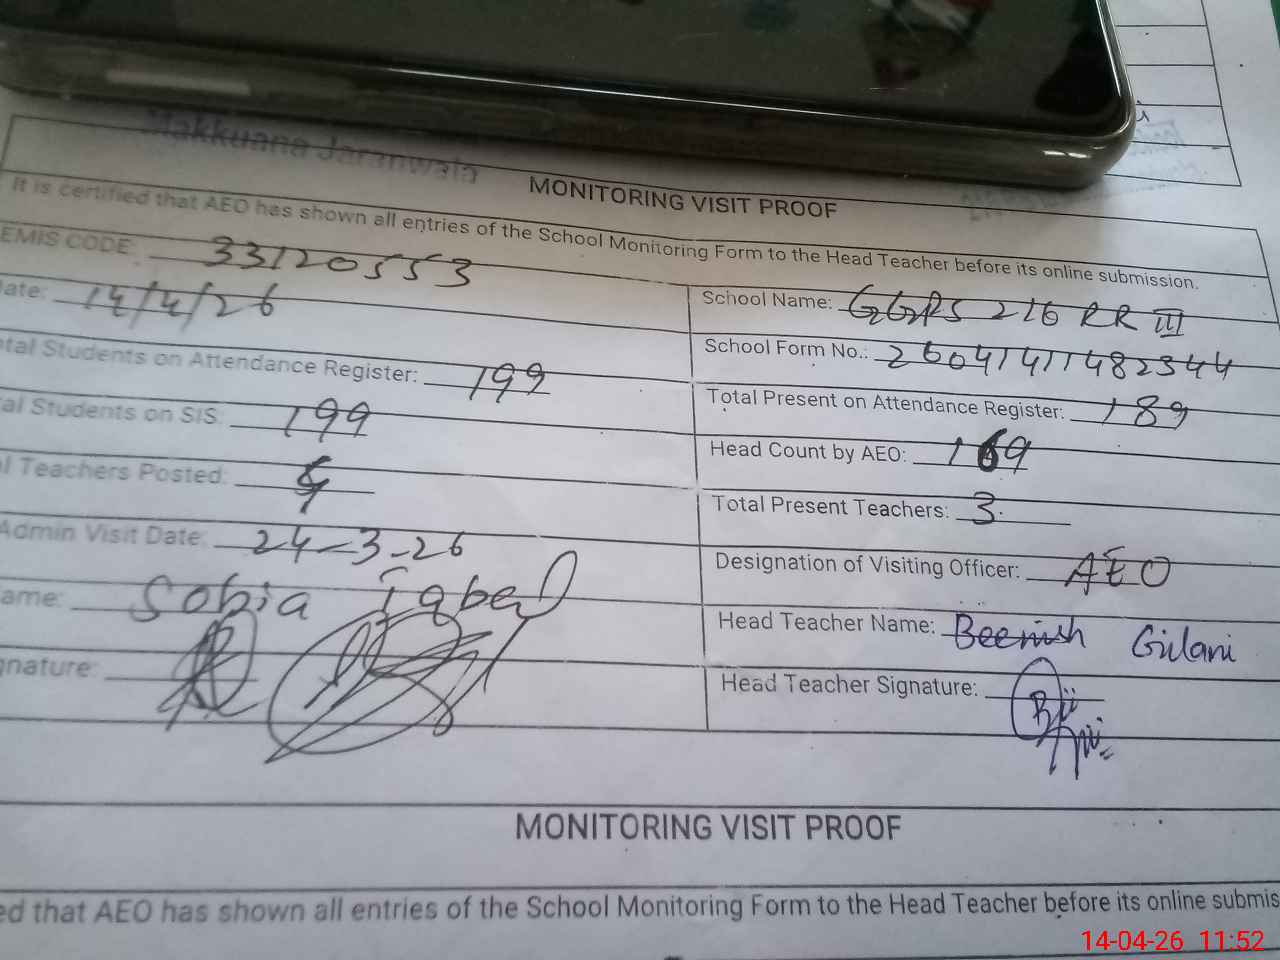 Makkuana Jaranwala
MONITORING VISIT PROOF
It is certified that AEO has shown all entries of the School Monitoring Form to the Head Teacher before its online submission.
EMIS CODE: 33120553
School Name: GGPS 216 RR III
ate: 14/4/26
School Form No.: 26041411482344
tal Students on Attendance Register: 199
Total Present on Attendance Register: 189
al Students on SIS: 199
Head Count by AEO: 169
l Teachers Posted:
Total Present Teachers: 3
Admin Visit Date: 24-3-26
Designation of Visiting Officer: AEO
ame: Sobia Iqbal
Head Teacher Name: Beenish Gilani
gnature:
Head Teacher Signature:
MONITORING VISIT PROOF
ed that AEO has shown all entries of the School Monitoring Form to the Head Teacher before its online submis
14-04-26 11:52